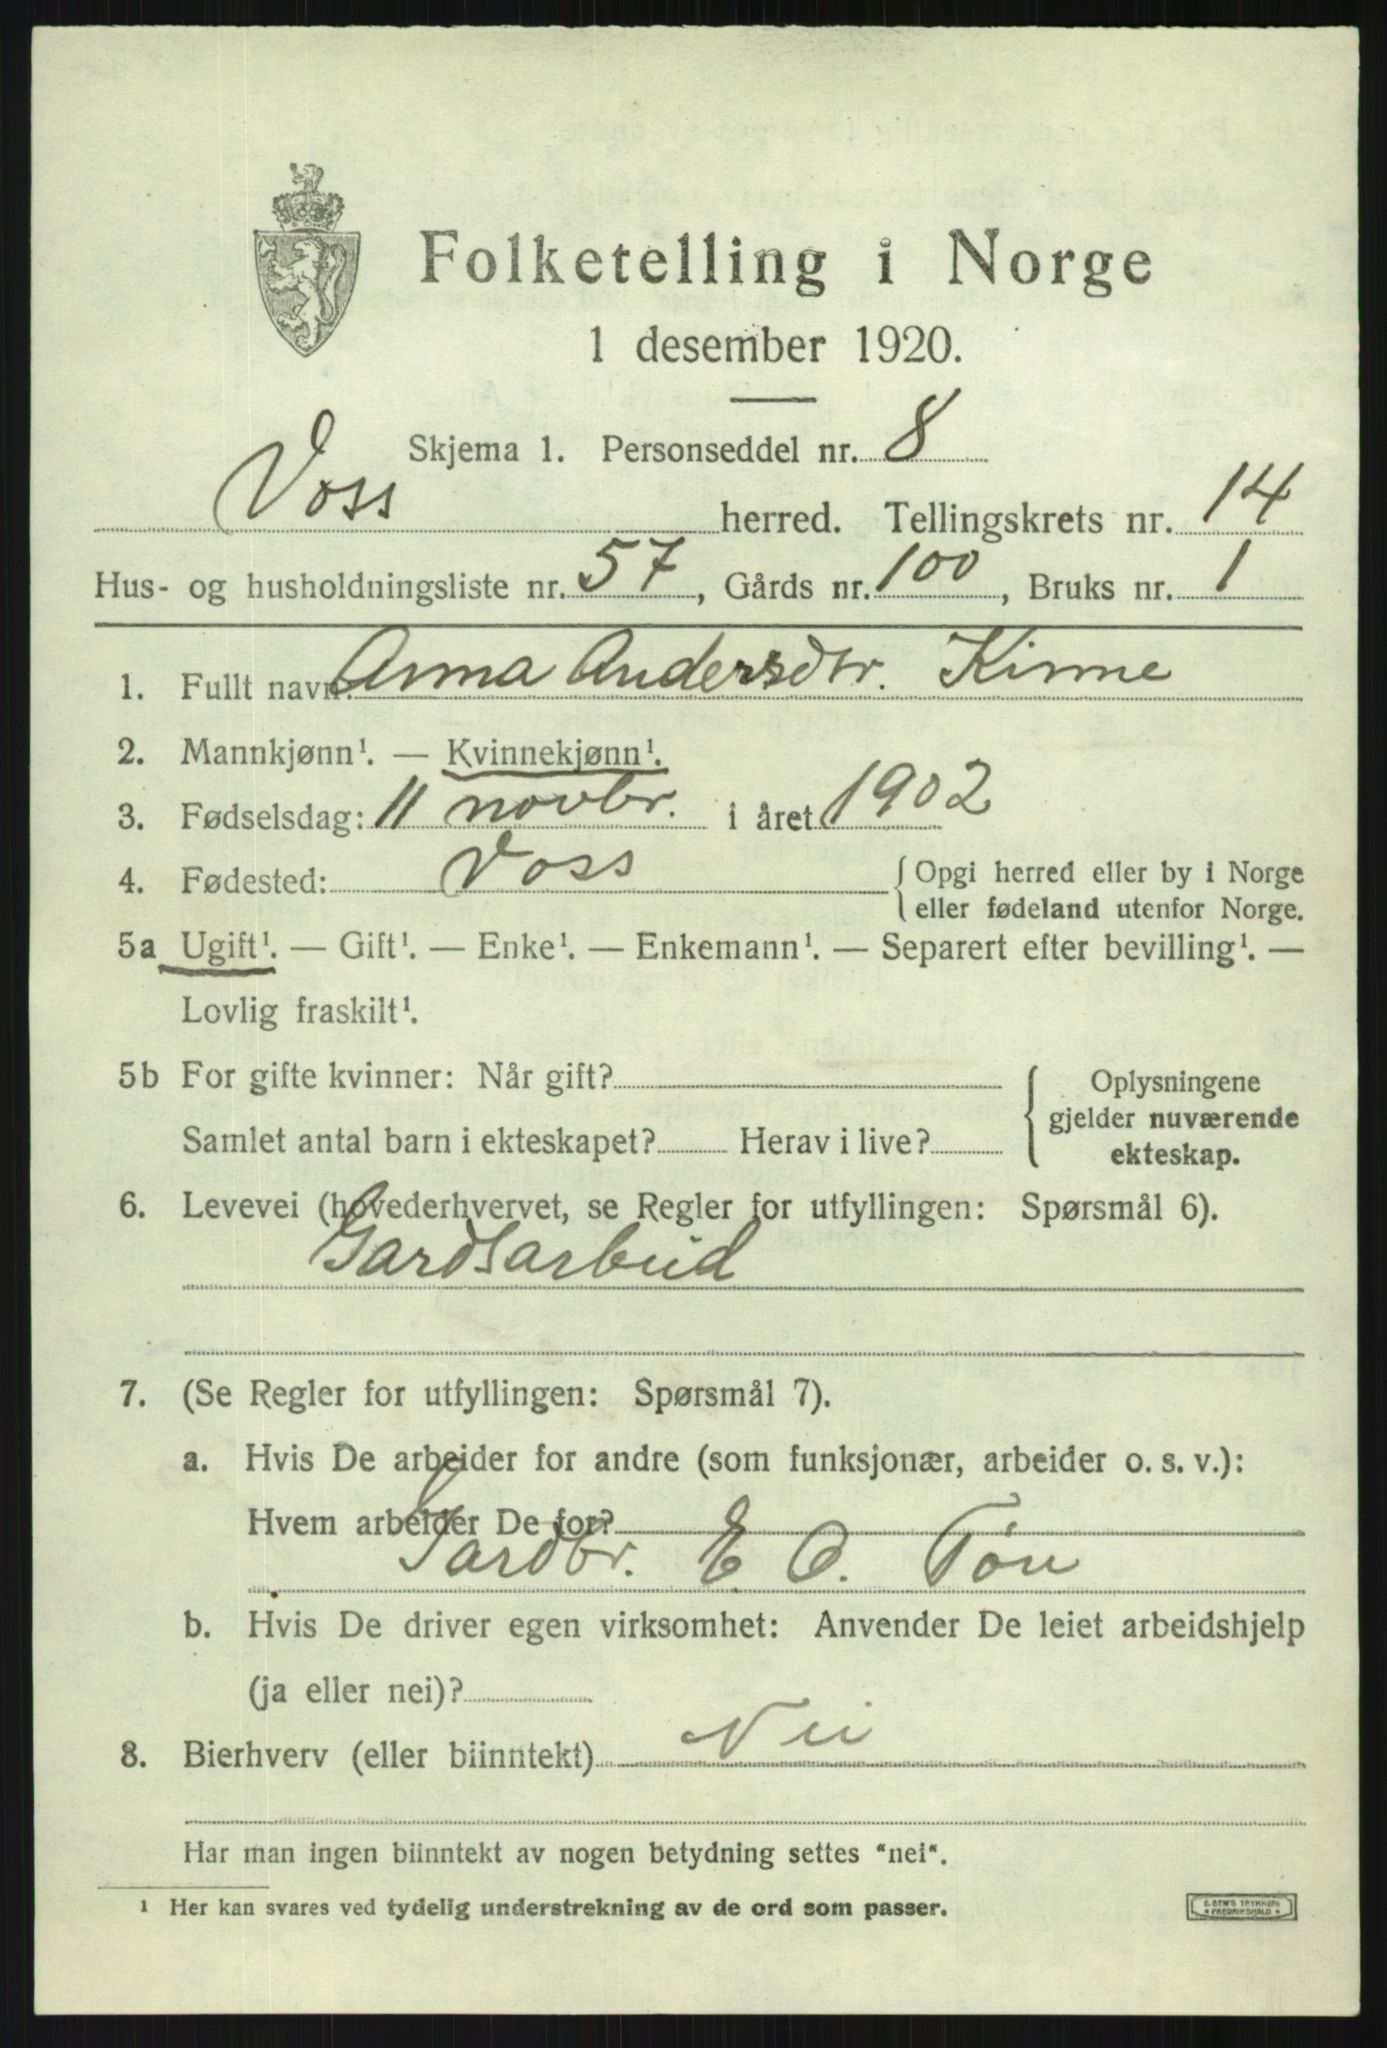 Folketelling i Norge
1 desember 1920.
Skjema 1. Personseddel nr. 8
Voss herred. Tellingskrets nr. 14
Hus- og husholdningsliste nr. 57, Gårds nr. 100, Bruks nr. 1
1. Fullt navn: Anna Andersdtr. Kinne
2. Mannkjønn¹. — Kvinnekjønn¹.
3. Fødselsdag: 11 novbr. i året 1902
4. Fødested: Voss {Opgi herred eller by i Norge
eller fødeland utenfor Norge.
5a Ugift¹. — Gift¹. — Enke¹. — Enkemann¹. — Separert efter bevilling¹. —
Lovlig fraskilt¹.
5b For gifte kvinner: Når gift? { Oplysningene
gjelder nuværende
Samlet antal barn i ekteskapet? Herav i live? ekteskap.
6. Levevei (hovederhvervet, se Regler for utfyllingen: Spørsmål 6).
Gardsarbeid
7. (Se Regler for utfyllingen: Spørsmål 7).
a. Hvis De arbeider for andre (som funksjonær, arbeider o. s. v.):
Hvem arbeider De for?
Gardbr. E O. Tøn
b. Hvis De driver egen virksomhet: Anvender De leiet arbeidshjelp
(ja eller nei)?
8. Bierhverv (eller biinntekt) Nei
Har man ingen biinntekt av nogen betydning settes "nei".
¹ Her kan svares ved tydelig understrekning av de ord som passer.
E. SEM'S TRYKKERI
* FREDRIKSHALD *